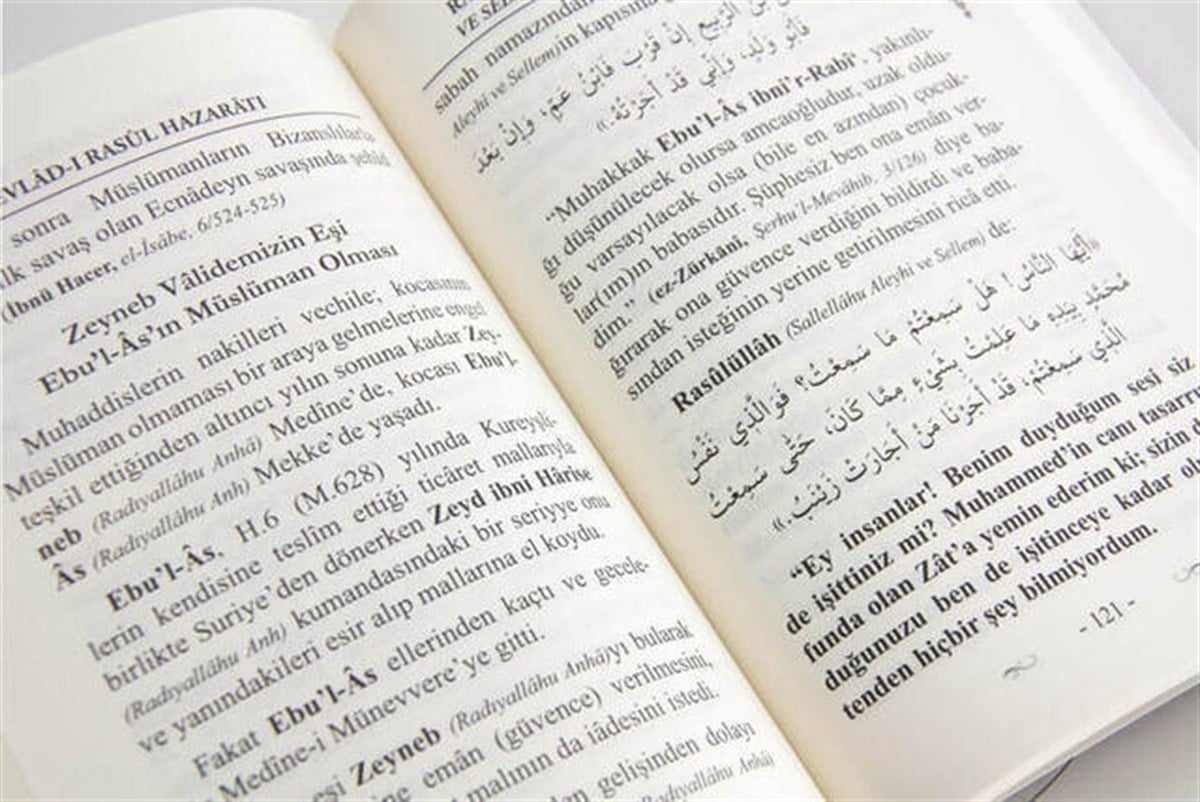 EVLÂD-I RASÛL HAZARÂTI
sonra Müslümanların Bizanslılarla
ilk savaş olan Ecnâdeyn savaşında şehîd
(İbnü Hacer, el-İsâbe, 6/524-525)
Zeyneb Vâlidemizin Eşi
Ebu'l-Âs'ın Müslüman Olması
Muhaddislerin nakilleri vechile; kocasının
Müslüman olmaması bir araya gelmelerine engel
teşkil ettiğinden altıncı yılın sonuna kadar Zey-
neb (Radıyallâhu Anhâ) Medîne'de, kocası Ebu'l-
Âs (Radıyallâhu Anh) Mekke'de yaşadı.
Ebu'l-Âs, H.6 (M.628) yılında Kureyşli-
lerin kendisine teslîm ettiği ticâret mallarıyla
birlikte Suriye'den dönerken Zeyd ibni Hârise
(Radıyallâhu Anh) kumandasındaki bir seriyye onu
ve yanındakileri esir alıp mallarına el koydu.
Fakat Ebu'l-Âs ellerinden kaçtı ve gecele-
Medîne-i Münevvere'ye gitti.
eşi Zeyneb (Radıyallâhu Anhâ)yı bularak
emân (güvence) verilmesini,
malının da iâdesini istedi.
gelişinden dolayı
(Radıyallâhu Anhâ)
VE SELLEM
sabah namazından
Aleyhi ve Sellem)in kapısına
بْنَ الرَّبِيعِ إِنْ قَرُبَ فَابْنُ عَمٍّ، وَإِنْ بَعُدَ
فَأَبُو وَلَدٍ، وَإِنِّي قَدْ أَجَرْتُهُ.»
"Muhakkak Ebu'l-Âs ibni'r-Rabî', yakınlı-
ğı düşünülecek olursa amcaoğludur, uzak oldu-
ğu varsayılacak olsa (bile en azından) çocuk-
lar(ım)ın babasıdır. Şüphesiz ben ona emân ver-
dim." (ez-Zürkânî, Şerhu'l-Mevâhib, 3/126) diye ba-
ğırarak ona güvence verdiğini bildirdi ve baba-
sından isteğinin yerine getirilmesini ricâ etti.
Rasûlüllâh (Sallellâhu Aleyhi ve Sellem) de:
«أَيُّهَا النَّاسُ! هَلْ سَمِعْتُمْ مَا سَمِعْتُ؟ فَوَالَّذِي نَفْسُ
مُحَمَّدٍ بِيَدِهِ مَا عَلِمْتُ بِشَيْءٍ مِمَّا كَانَ، حَتَّى سَمِعْتُ
الَّذِي سَمِعْتُمْ، قَدْ أَجَرْنَا مَنْ أَجَارَتْ زَيْنَبُ.»
"Ey insanlar! Benim duyduğum sesi siz
de işittiniz mi? Muhammed'in canı tasarru-
funda olan Zât'a yemin ederim ki; sizin
duğunuzu ben de işitinceye kadar
tenden hiçbir şey bilmiyordum.
- 121 -